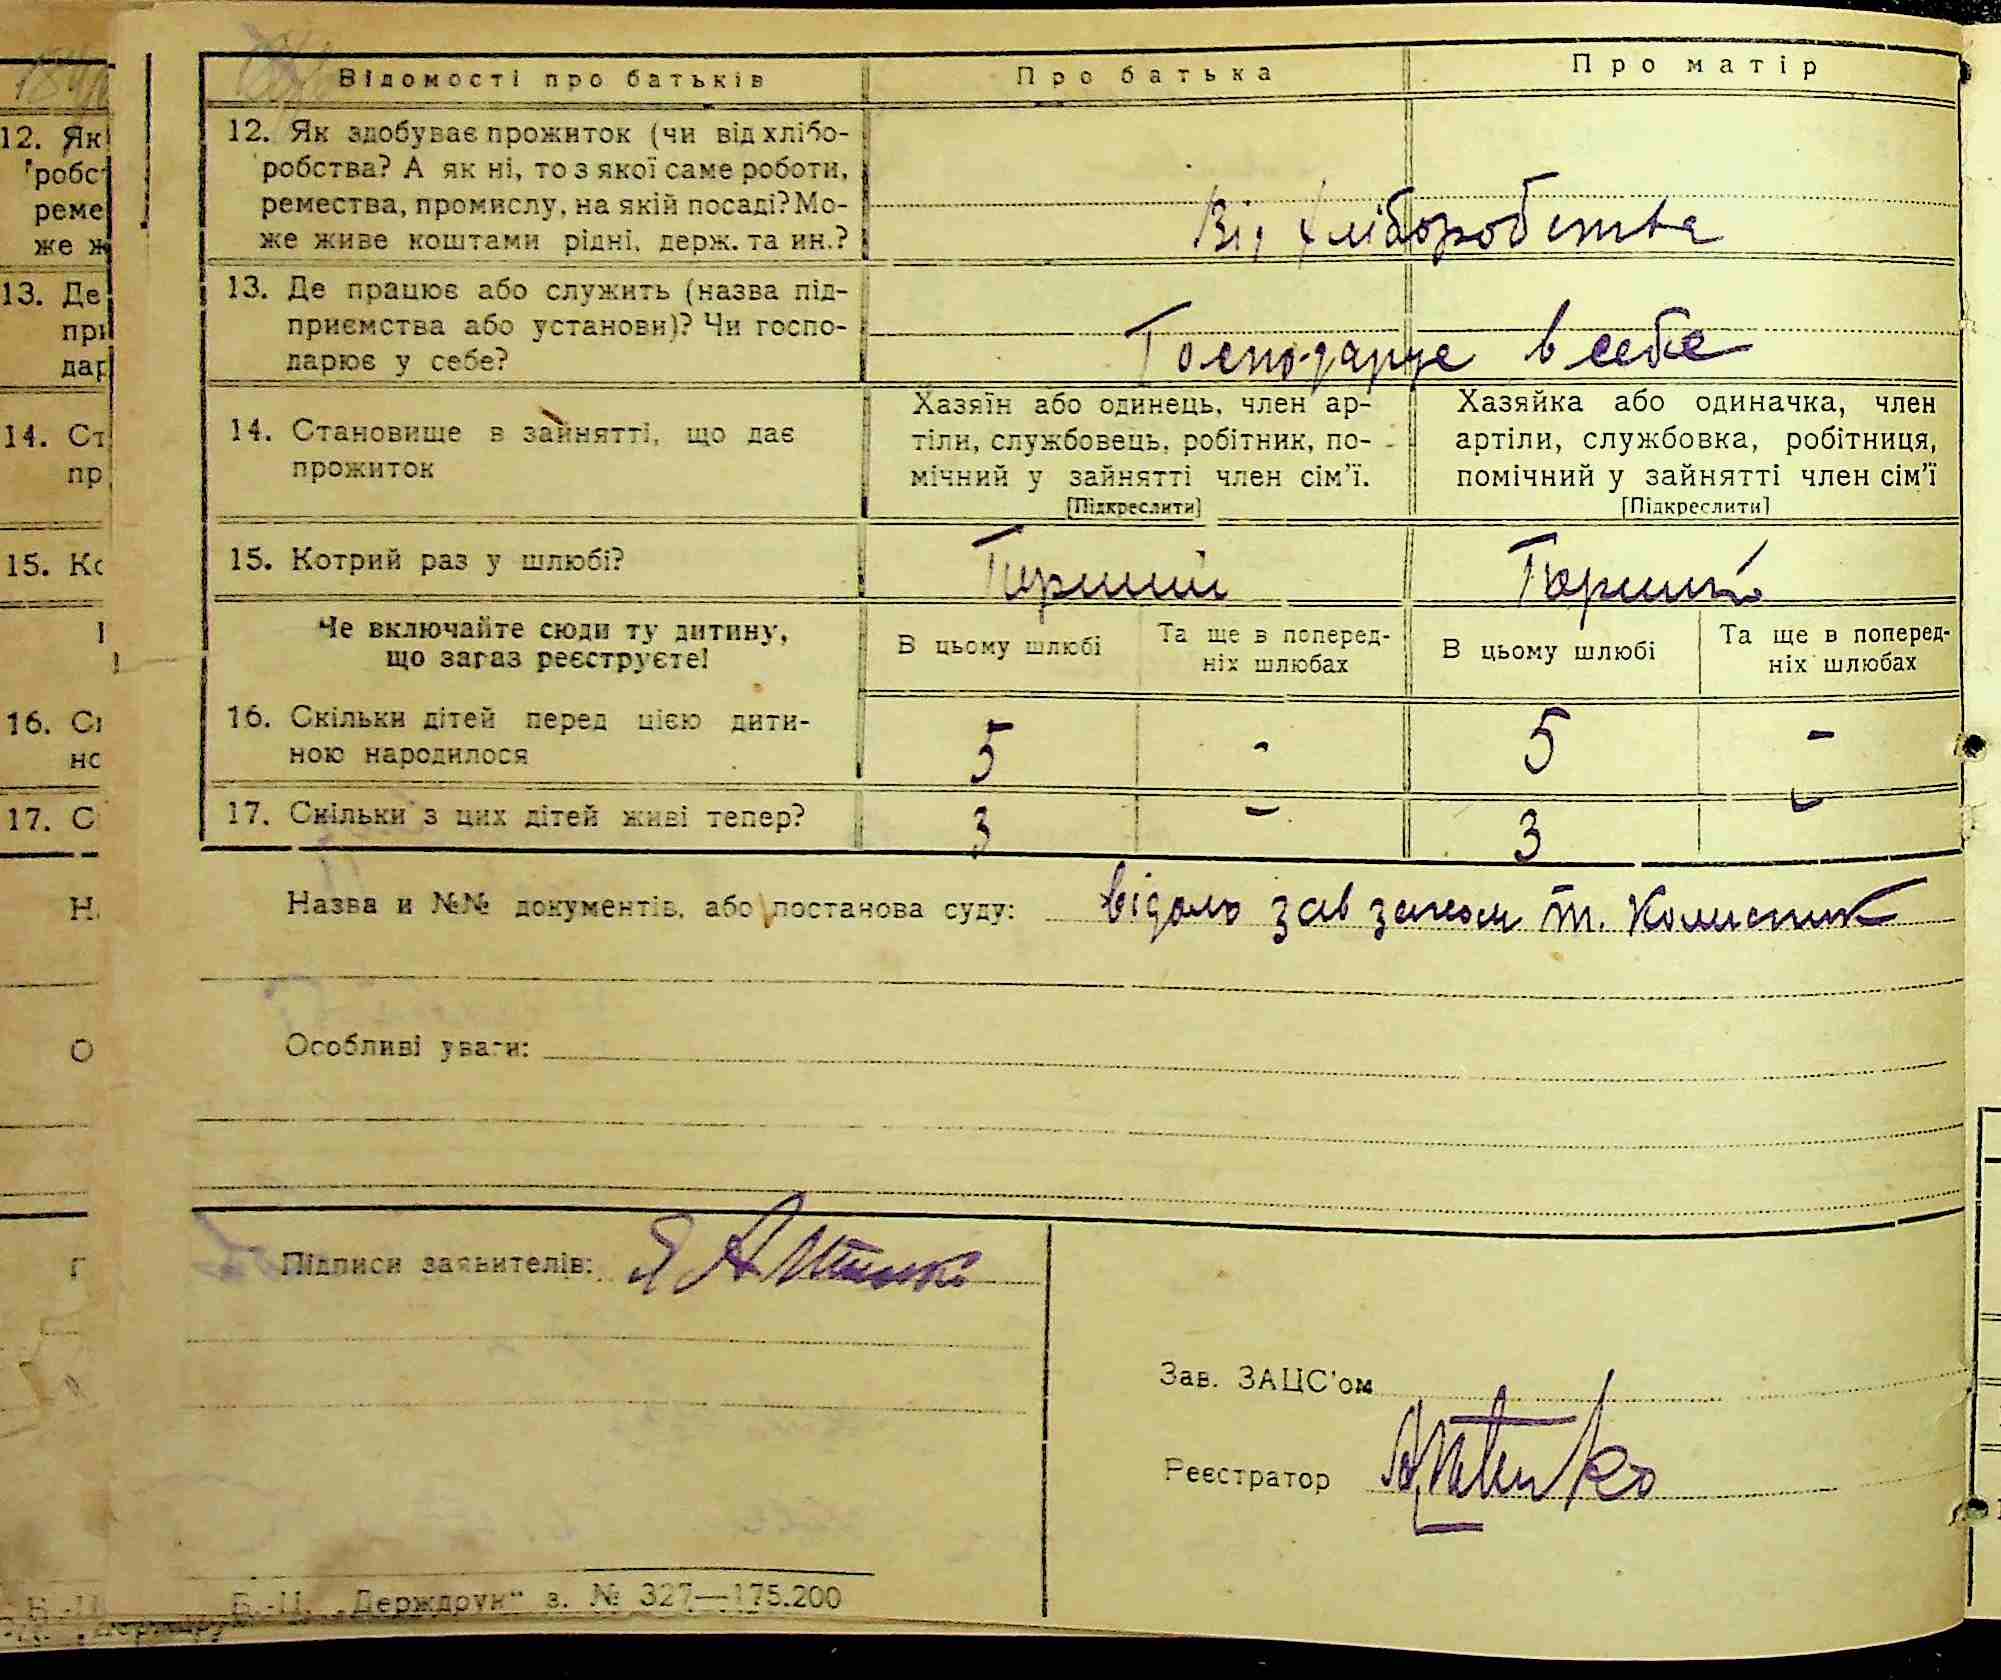 Відомості про батьків
Про батька
Про матір
12. Як здобуває прожиток (чи від хлібо-
робства? А як ні, то з якої саме роботи,
ремества, промислу, на якій посаді? Мо-
же живе коштами рідні, держ. та ин.?
Від хліборобства
13. Де працює або служить (назва під-
приємства або установи)? Чи госпо-
дарює у себе?
Господарує в себе
14. Становище в зайнятті, що дає
прожиток
Хазяїн або одинець, член ар-
тіли, службовець, робітник, по-
мічний у зайнятті член сім'ї.
[Підкреслити]
Хазяйка або одиначка, член
артіли, службовка, робітниця,
помічний у зайнятті член сім'ї
[Підкреслити]
15. Котрий раз у шлюбі?
Перший
Перший
Не включайте сюди ту дитину,
що зараз реєструєте!
В цьому шлюбі
Та ще в поперед-
ніх шлюбах
В цьому шлюбі
Та ще в поперед-
ніх шлюбах
16. Скільки дітей перед цією дити-
ною народилося
5 - 5 -
17. Скільки з цих дітей живі тепер?
3 - 3 -
Назва и №№ документів, або постанова суду: відомо зав загсом т.
Особливі уваги:
Підписи заявителів:
Зав. ЗАЦС'ом
Реєстратор
Б.-Ц. „Держдрук" з. № 327—175.200
12. Як
робс
реме
же ж
13. Де
при
дар
14. Ст
пр
15. Ко
16. Ск
но
17. С
Н
О
П